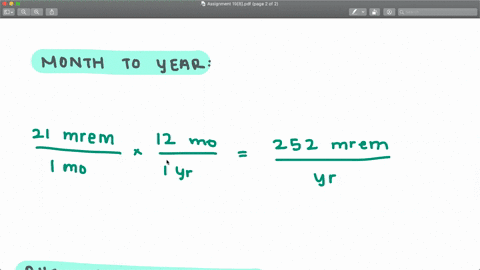 Assignment 10(5).pdf (page 2 of 2)
Search
MONTH TO YEAR:
21 mrem / 1 mo × 12 mo / 1 yr = 252 mrem / yr